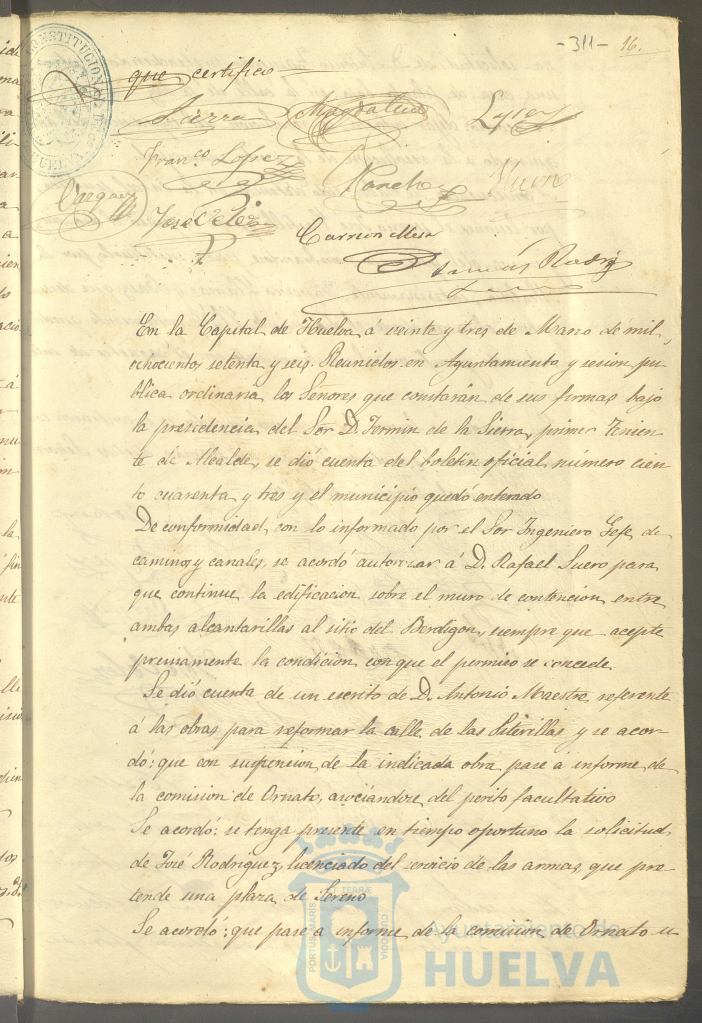 -311- 16.
CONSTITUCIONAL
HUELVA
que certifico
Sierra
Lopez
Franco Lopez
Sancho
Vargas
Jose Velez
Carrion Mesa
Tomás Rodrz
En la Capital de Huelva á veinte y tres de Marzo de mil
ochocientos setenta y seis. Reunidos en Ayuntamiento y sesion pu-
blica ordinaria los Señores que constarán de sus firmas bajo
la presidencia del Sor D. Fermin de la Sierra, primer Tenien-
te de Alcalde, se dió cuenta del boletin oficial número cien
to cuarenta y tres y el municipio quedó enterado
De conformidad con lo informado por el Sor Ingeniero Gefe de
caminos y canales, se acordó autorizar á D. Rafael Suero para
que continue la edificacion sobre el muro de contencion entre
ambas alcantarillas al sitio del Berdigon, siempre que acepte
precisamente la condicion con que el permiso se concede
Se dió cuenta de un escrito de D. Antonio Maestre, referente
á las obras para reformar la calle de las Siterillas y se acor-
dó: que con suspension de la indicada obra pase a informe de
la comision de Ornato, asociandose del perito facultativo
Se acordó: se tenga presente en tiempo oportuno la solicitud
de José Rodriguez, licenciado del servicio de las armas, que pre-
tende una plaza de Sereno
Se acordó: que pase a informe de la comision de Ornato u
PORTUS MARIS ET TERRAE CUSTODIA
Ayuntamiento de
HUELVA